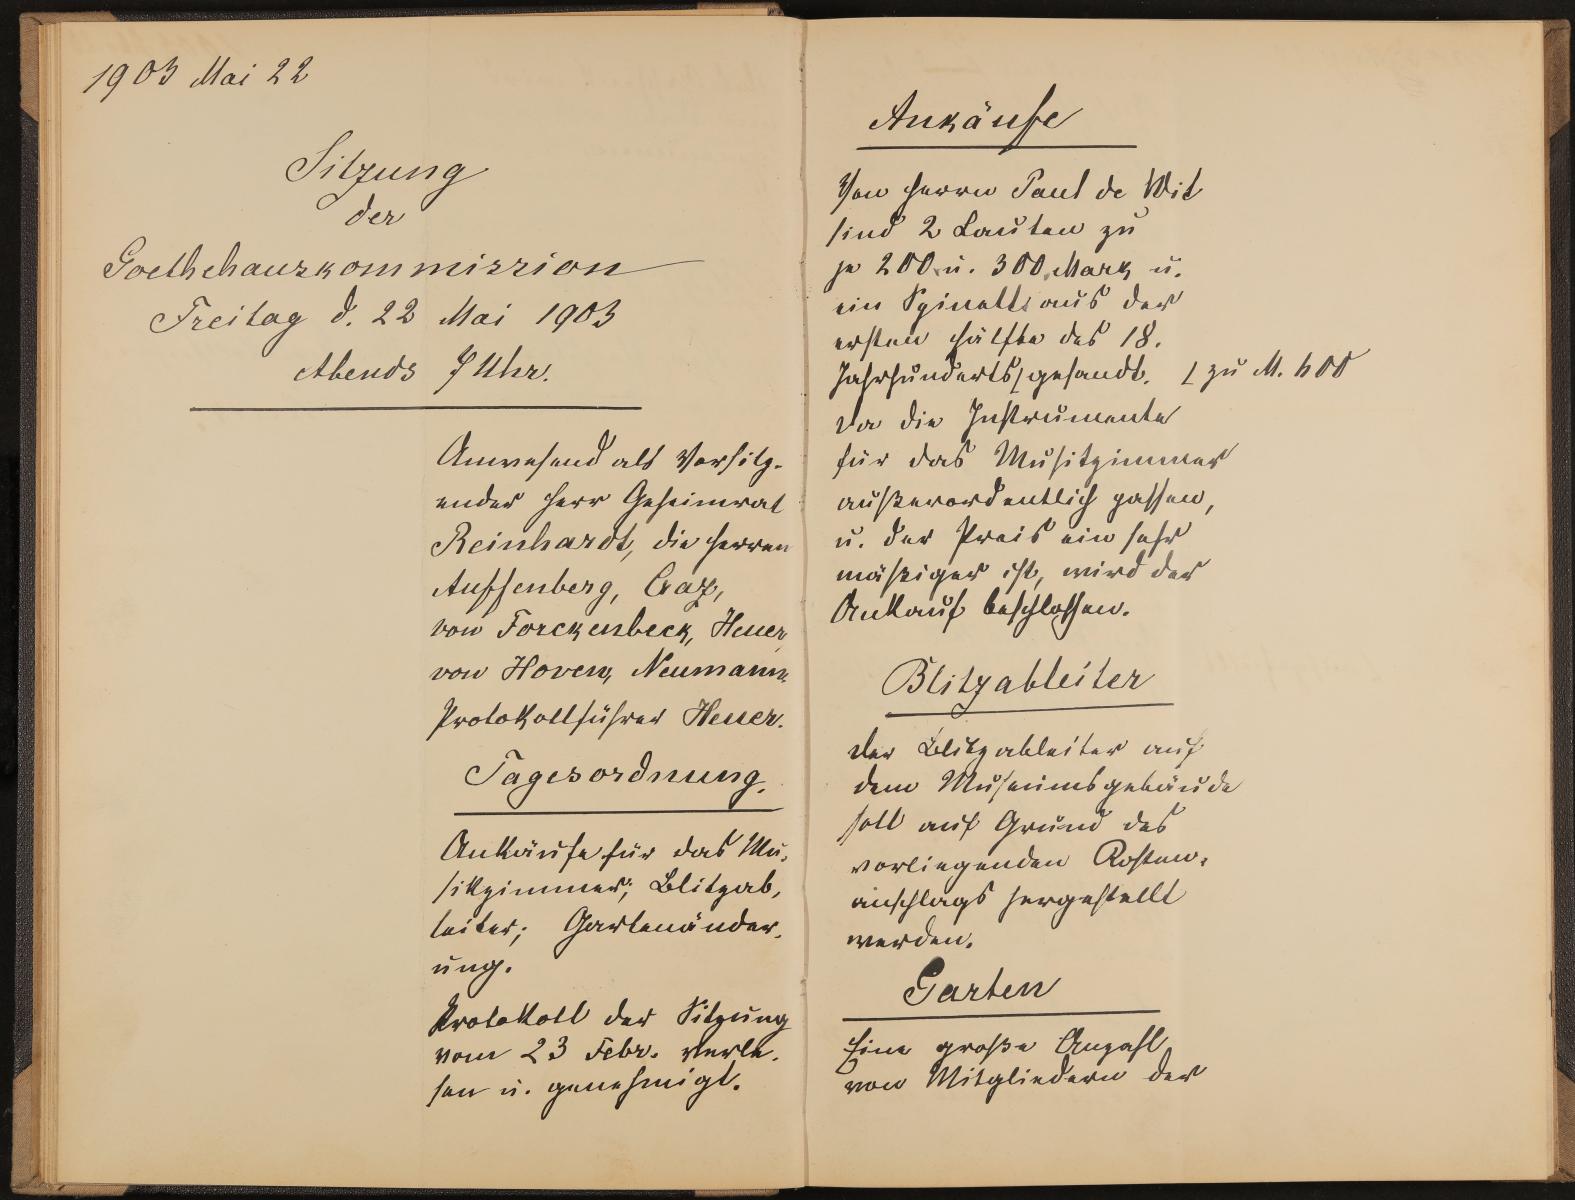 1903 Mai 22
Sitzung
der
Goethehauskommission
Freitag d. 22 Mai 1903
Abends 7 Uhr.
Anwesend als Vorsitz-
ender Herr Geheimrat
Reinhardt, die Herren
Auffenberg,
von Forckenbeck, Heuer,
von Hoven, Neumann
Protokollführer Heuer.
Tagesordnung.
Ankäufe für das Mu-
sikzimmer; Blitzab-
leiter; Gartenänder-
ung.
Protokoll der Sitzung
vom 23 Febr. verle-
sen u. genehmigt.
Ankäufe
Von Herrn Paul de Wit
sind 2 Lauten zu
je 200 u. 300 Mark u.
ein Spinett aus der
ersten Hälfte des 18.
Jahrhunderts ⌊ gesandt. ⌊ zu M. 600
Da die Instrumente
für das Musikzimmer
außerordentlich passen,
u. der Preis ein sehr
mäßiger ist, wird der
Ankauf beschlossen.
Blitzableiter
Der Blitzableiter auf
dem Museumsgebäude
soll auf Grund des
vorliegenden Kosten-
anschlags hergestellt
werden.
Garten
Eine große Anzahl
von Mitgliedern der